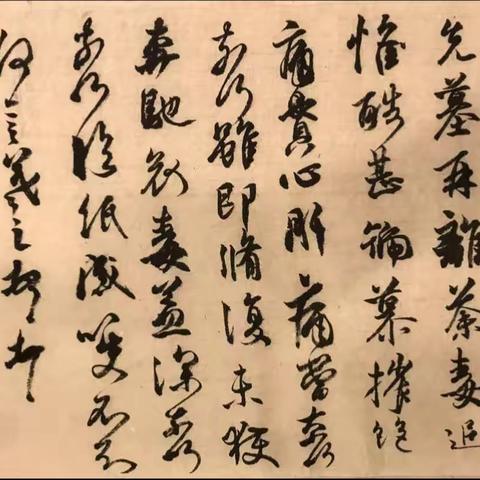 先墓再離荼毒追
惟酷甚號慕摧絕
痛貫心肝痛當奈何
奈何雖即脩復未獲
奔馳哀毒益深奈何
奈何臨紙感哽不知
何言羲之頓首頓首